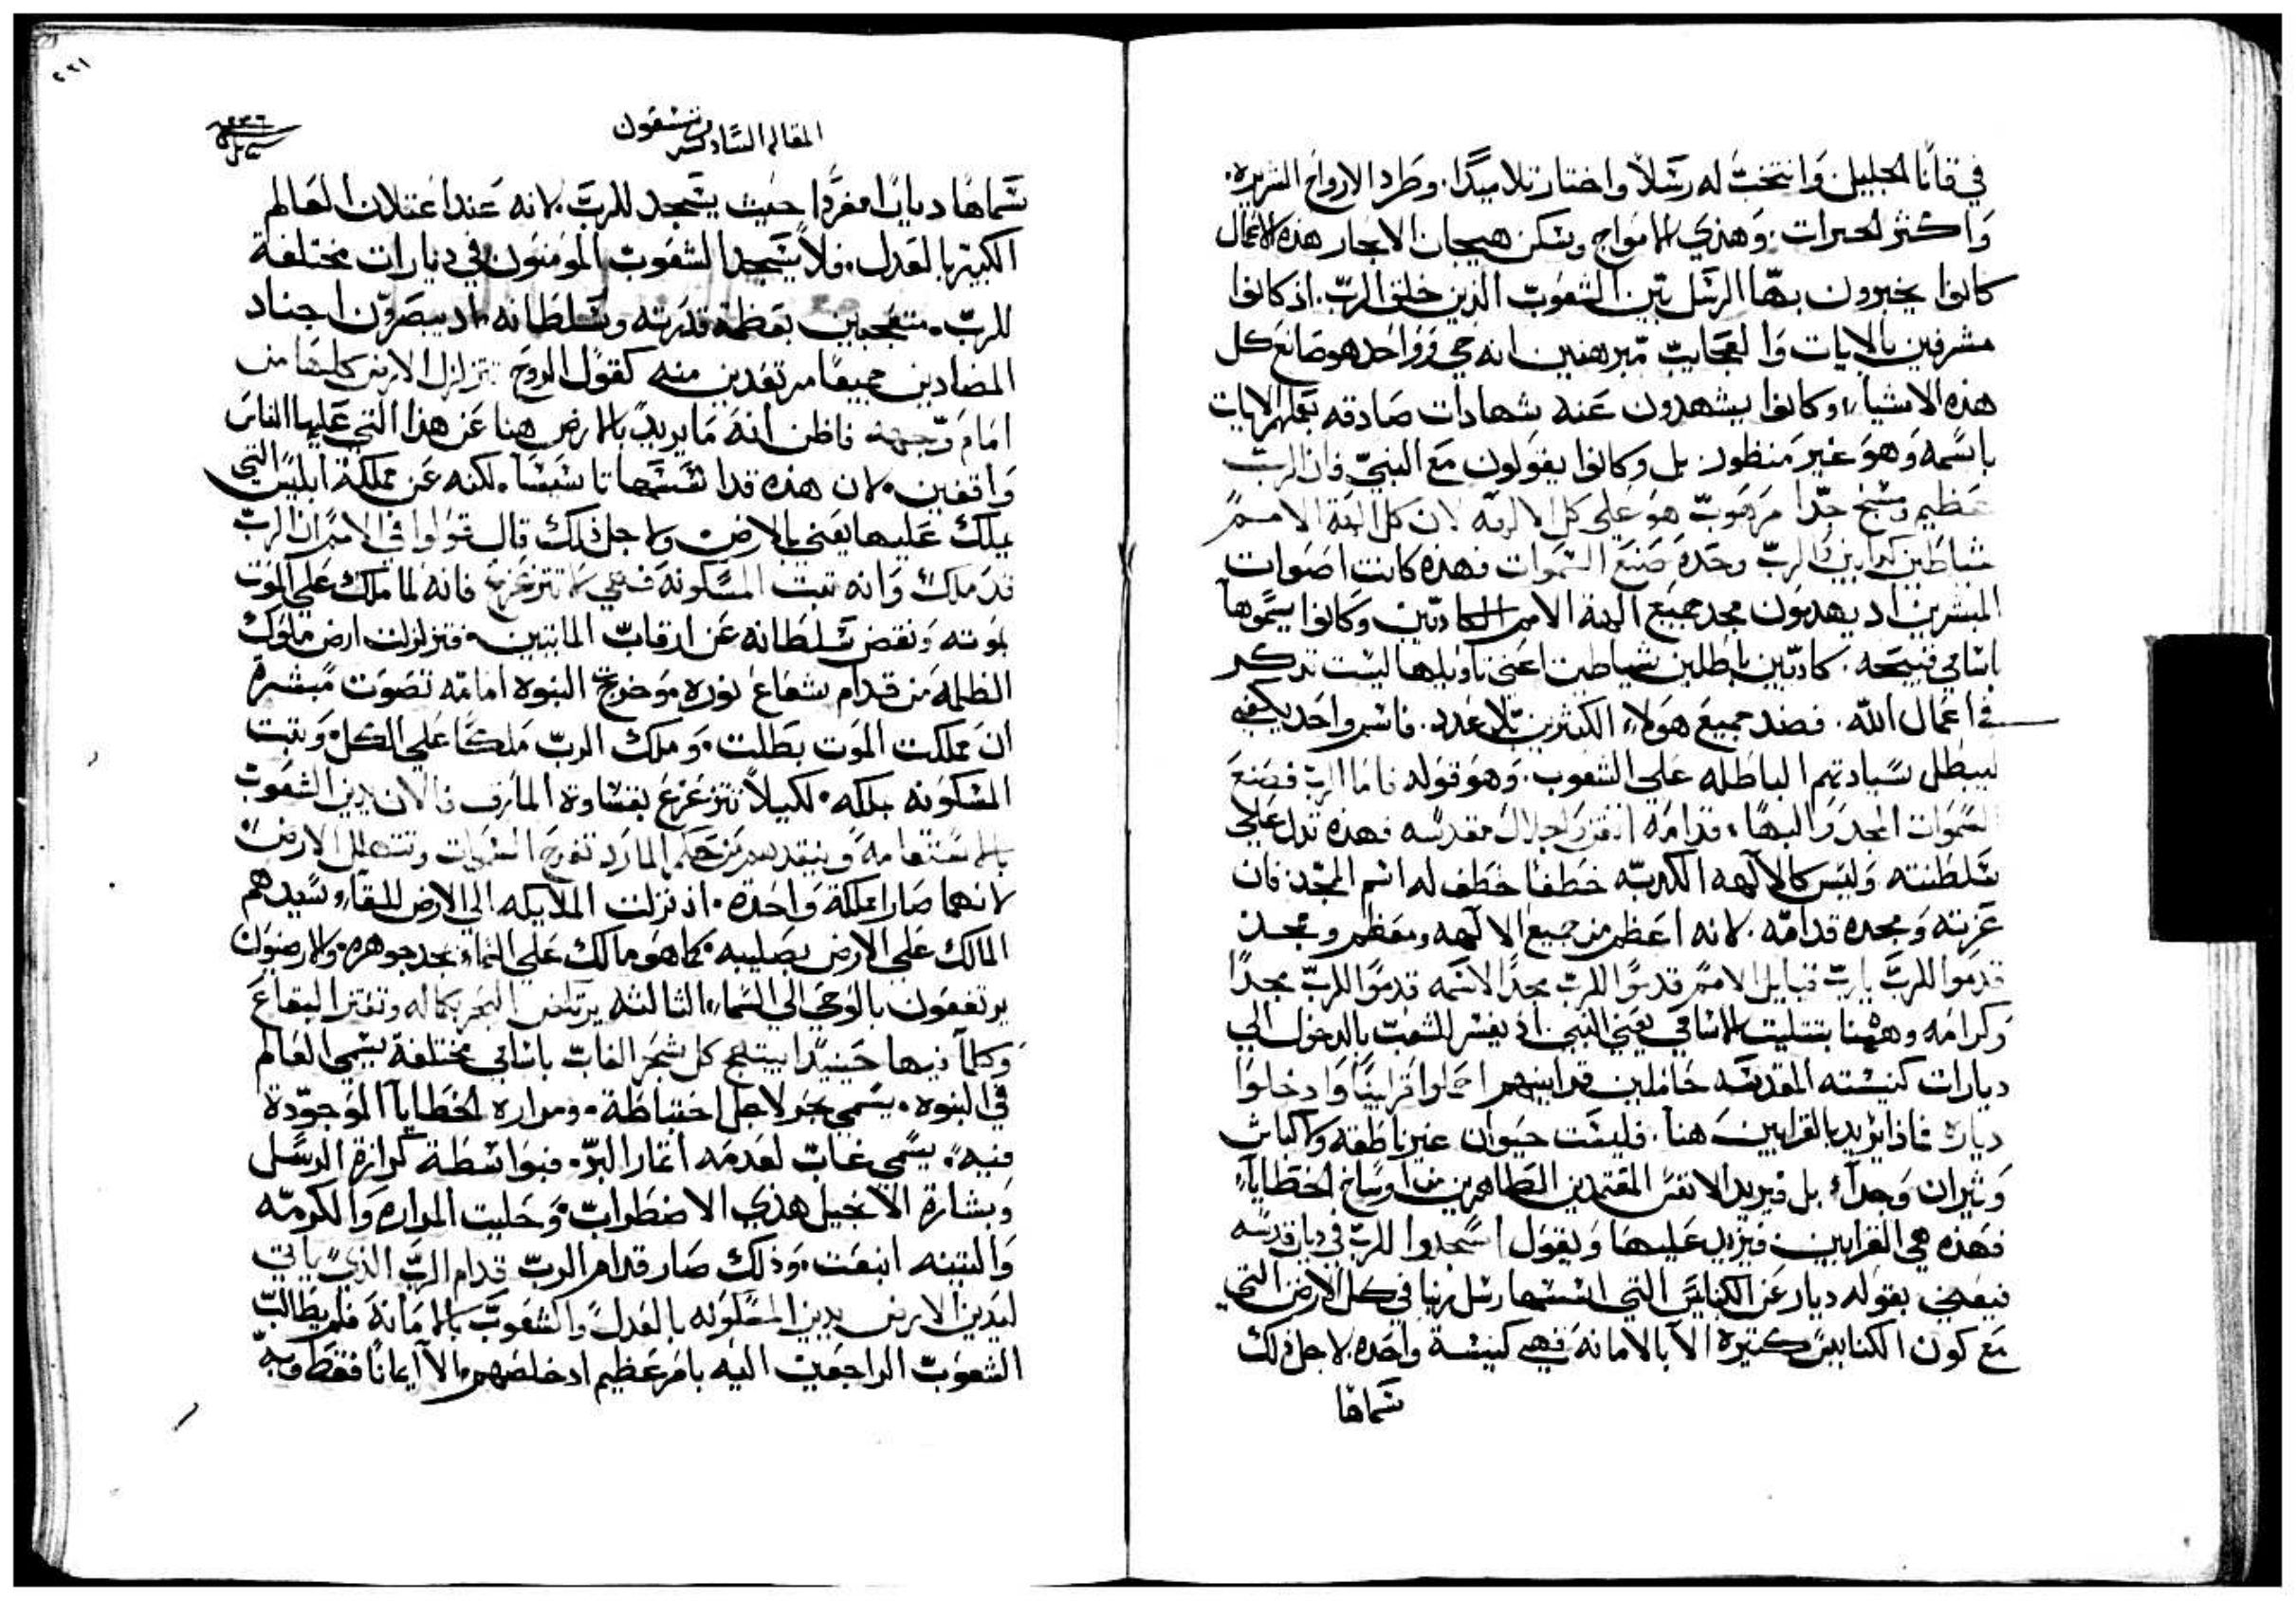 في قانا الجليل وانتخب له رسلاً واختار تلاميدًا. وطرد الارواح الشريره.
واكثر الخبرات. وهدي الامواج وسكن هيجان الابحار هذه الاعمال
كانوا يخبرون بها الرسل بين الشعوب الذين خلق الرب. اذ كانوا
مشرفين بالايات والعجايب مبرهنين انه حي وواحد هو صانع كل
هذه الاشيا، وكانوا يشهدون عنه شهادات صادقه بعملهم الايات
باسمه وهو غير منظور. بل وكانوا يقولون مع النبي فان الرب
عظيم ومسبح جدًا مرهوب هو على كل الالهه لان كل الهة الامم
شياطين الرب وحده صنع السموات فهذه كانت اصوات
المبشرين اد يهدمون مجد جميع الهة الامم الكادبين وكانوا يسموها
اسامي قبيحه. كادبين باطلين شياطين اعني تاويلها ليست تدكر
في اعمال الله. فضد جميع هولاء الكثيرين بلا عدد. فاسم واحد يكفي
ليبطل سيادتهم الباطله على الشعوب. وهو قوله فاما الرب فصنع
السموات المجد والبها، قدامه مقدسه فهذه تدل على
سلطنته وليس كالالهه الكدبه خطفًا خطف له اسم المجد. فان
عزته ومجده قدامه. لانه اعظم من جميع الالهه ومعظم وممجد
قدموا للرب يارب قبايل الامم قدموا للرب مجدًا لاسمه قدموا للرب مجدًا
وكرامه وههنا بتتليت الاسامي يعني النبي. اذ يفسر للشعب بالدخول الي
ديارات كنيسته المقدسه حاملين قرابينهم احملوا قرابينًا وادخلوا
دياره فماذا يريد بالقرابين هنا. فليست حيوان غير ناطقه وكباش
وثيران وجدآء بل فيريد الانفس المعتمدين الطاهرين من اوساخ الخطايا
فهذه هي القرابين فيزيد عليها ويقول اسجدوا للرب في ديار قدسه
فيعني بقوله ديار عن الكنايس التي اسسها رسل ربنا في كل الارض التي
مع كون الكنايس كتيرة الا بالامانة فهي كنيسة واحده. لاجل ذلك
سماها
المقاله السادسه وتسعون
٢٢١
سماها ديارًا مفردًا حيث يسجد للرب. لانه عند اعتلان العالم
الكبير بالعدل. فلا يسجد الشعوب المومنون في ديارات مختلفة
للرب. متعجبين بعظمة قدرته وسلطانه اد يبصرون اجناد
المضادين جميعًا مرتعدين منه كقول الروح تتزلزل الارض كلها من
امام وجهه فاظن انه ما يريد بالارض هنا عن هذا التي عليها الناس
واقفين. لان هذه قد اسسها تاسيسًا. لكنه عن مملكة ابليس التي
يملك عليها يعني بالارض ولاجل ذلك قال قولوا في الامم ان الرب
قد ملك وانه تبت المسكونه فهي لا تتزعزع فانه لما ملك علي الموت
بموته ونقض سلطانه عن ارقاب المايتين. فتزلزلت ارض ملوك
الظلمه من قدام شعاع نوره وخرج النبوه امامه تصوت مبشرة
ان مملكت الموت بطلت. وملك الرب ملكًا علي الكل. وتبت
المسكونه بملكه. لكيلا تتزعزع بقساوة المارف فالان يدين الشعوب
بالاستقامة وينقدهم من المارد تفرح السموات وتتهلل الارض
لانهما صارا مملكة واحدة. اذ نزلت الملايكه الي الارض للقآء سيدهم
المالك على الارض بصليبه. كما هو مالك على السماء بمجد جوهره. والارضيون
يرتفعون بالوحي الي السماء الثالثه يرتاض البحر بكماله وتفتر البقاع
وكلما فيها حينيدًا يبتهج كل شجر الغاب باسامي مختلفة يسمي العالم
في النبوه. يسمي بحر لاجل اختباطه. ومراره الخطايا الموجودة
فيه. يسمي غاب لعدمه اتمار البر. فبواسطة كرازة الرسل
وبشارة الانجيل هذي الاضطراب. وحليت المراره والكرمه
والتينه اينعت. وذلك صار قدام الرب قدام الرب الذي ياتي
ليدين الارض يدين المسكونه بالعدل والشعوب بالامانة فلم يطالب
الشعوب الراجعين اليه بامر عظيم اد خلصهم الا ايمانًا فقط وبه